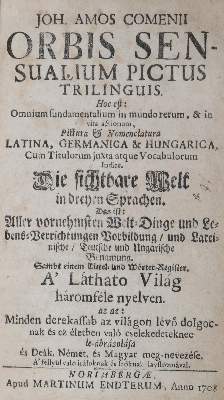 JOH. AMOS COMENII
ORBIS SEN-
SUALIUM PICTUS
TRILINGUIS.
Hoc est:
Omnium fundamentalium in mundo rerum, & in
vita actionum,
Pictura & Nomenclatura
LATINA, GERMANICA & HUNGARICA,
Cum Titulorum juxta atque Vocabulorum
Indice.
Die sichtbare Welt
in dreyen Sprachen.
Das ist:
Aller vornehmsten Welt-Dinge und Le-
bens-Verrichtungen Vorbildung / und Latei-
nische / Teutsche und Ungarische
Benamung.
Sambt einem Titel- und Wörter-Register.
A' Láthato Világ
háromféle nyelven.
az az:
Minden derekassab az világon lévő dolgoc-
nak és az életben való cselekedeteknec
le-ábrazolása
és Deák, Német, és Magyar meg-nevezése.
NORIMBERGÆ,
Apud MARTINUM ENDTERUM, Anno 1708